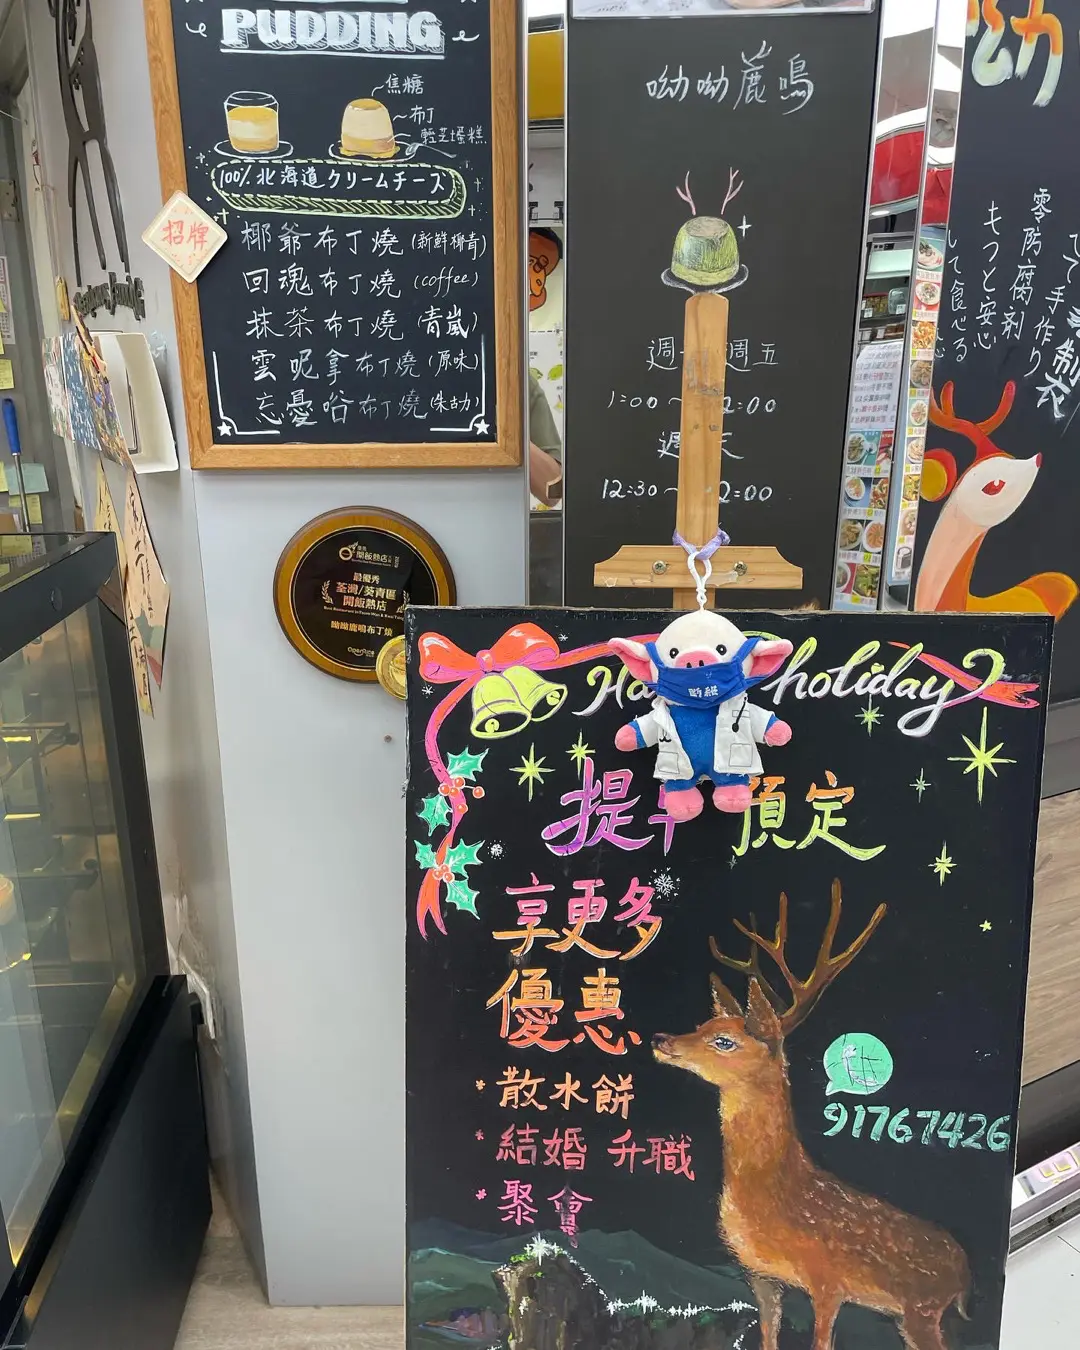 PUDDING
焦糖
布丁
輕芝士蛋糕
100% 北海道クリームチーズ
招牌
椰爺布丁燒 (新鮮椰青)
回魂布丁燒 (coffee)
抹茶布丁燒 (青嵐)
雲呢拿布丁燒 (原味)
忘憂谷布丁燒 (朱古力)
呦呦鹿鳴
週一 週五
1:00 ~ 2:00
週 天
12:30 ~ 2:00
呦
零防腐剤
もっと安心
して食べる
手作り
開飯熱店
最優秀
荃灣/葵青區
開飯熱店
呦呦鹿鳴布丁燒
OpenRice
Ha holiday
提早預定
享更多
優惠
* 散水餅
* 結婚 升職
* 聚會
91767426